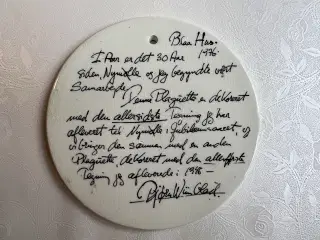 Blaa Hus.
1976.
I Aar er det 30 Aar
siden, Nymølle og jeg begyndte vort
Samarbejde.
Denne Plaquette er dekoreret
med den allersidste Tegning jeg har
afleveret til Nymølle i Jubilæumsaaret, og
vi bringer den sammen med en anden
Plaquette dekoreret med den allerførste
Tegning jeg afleverede i 1946 —
Bjørn Wiinblad.